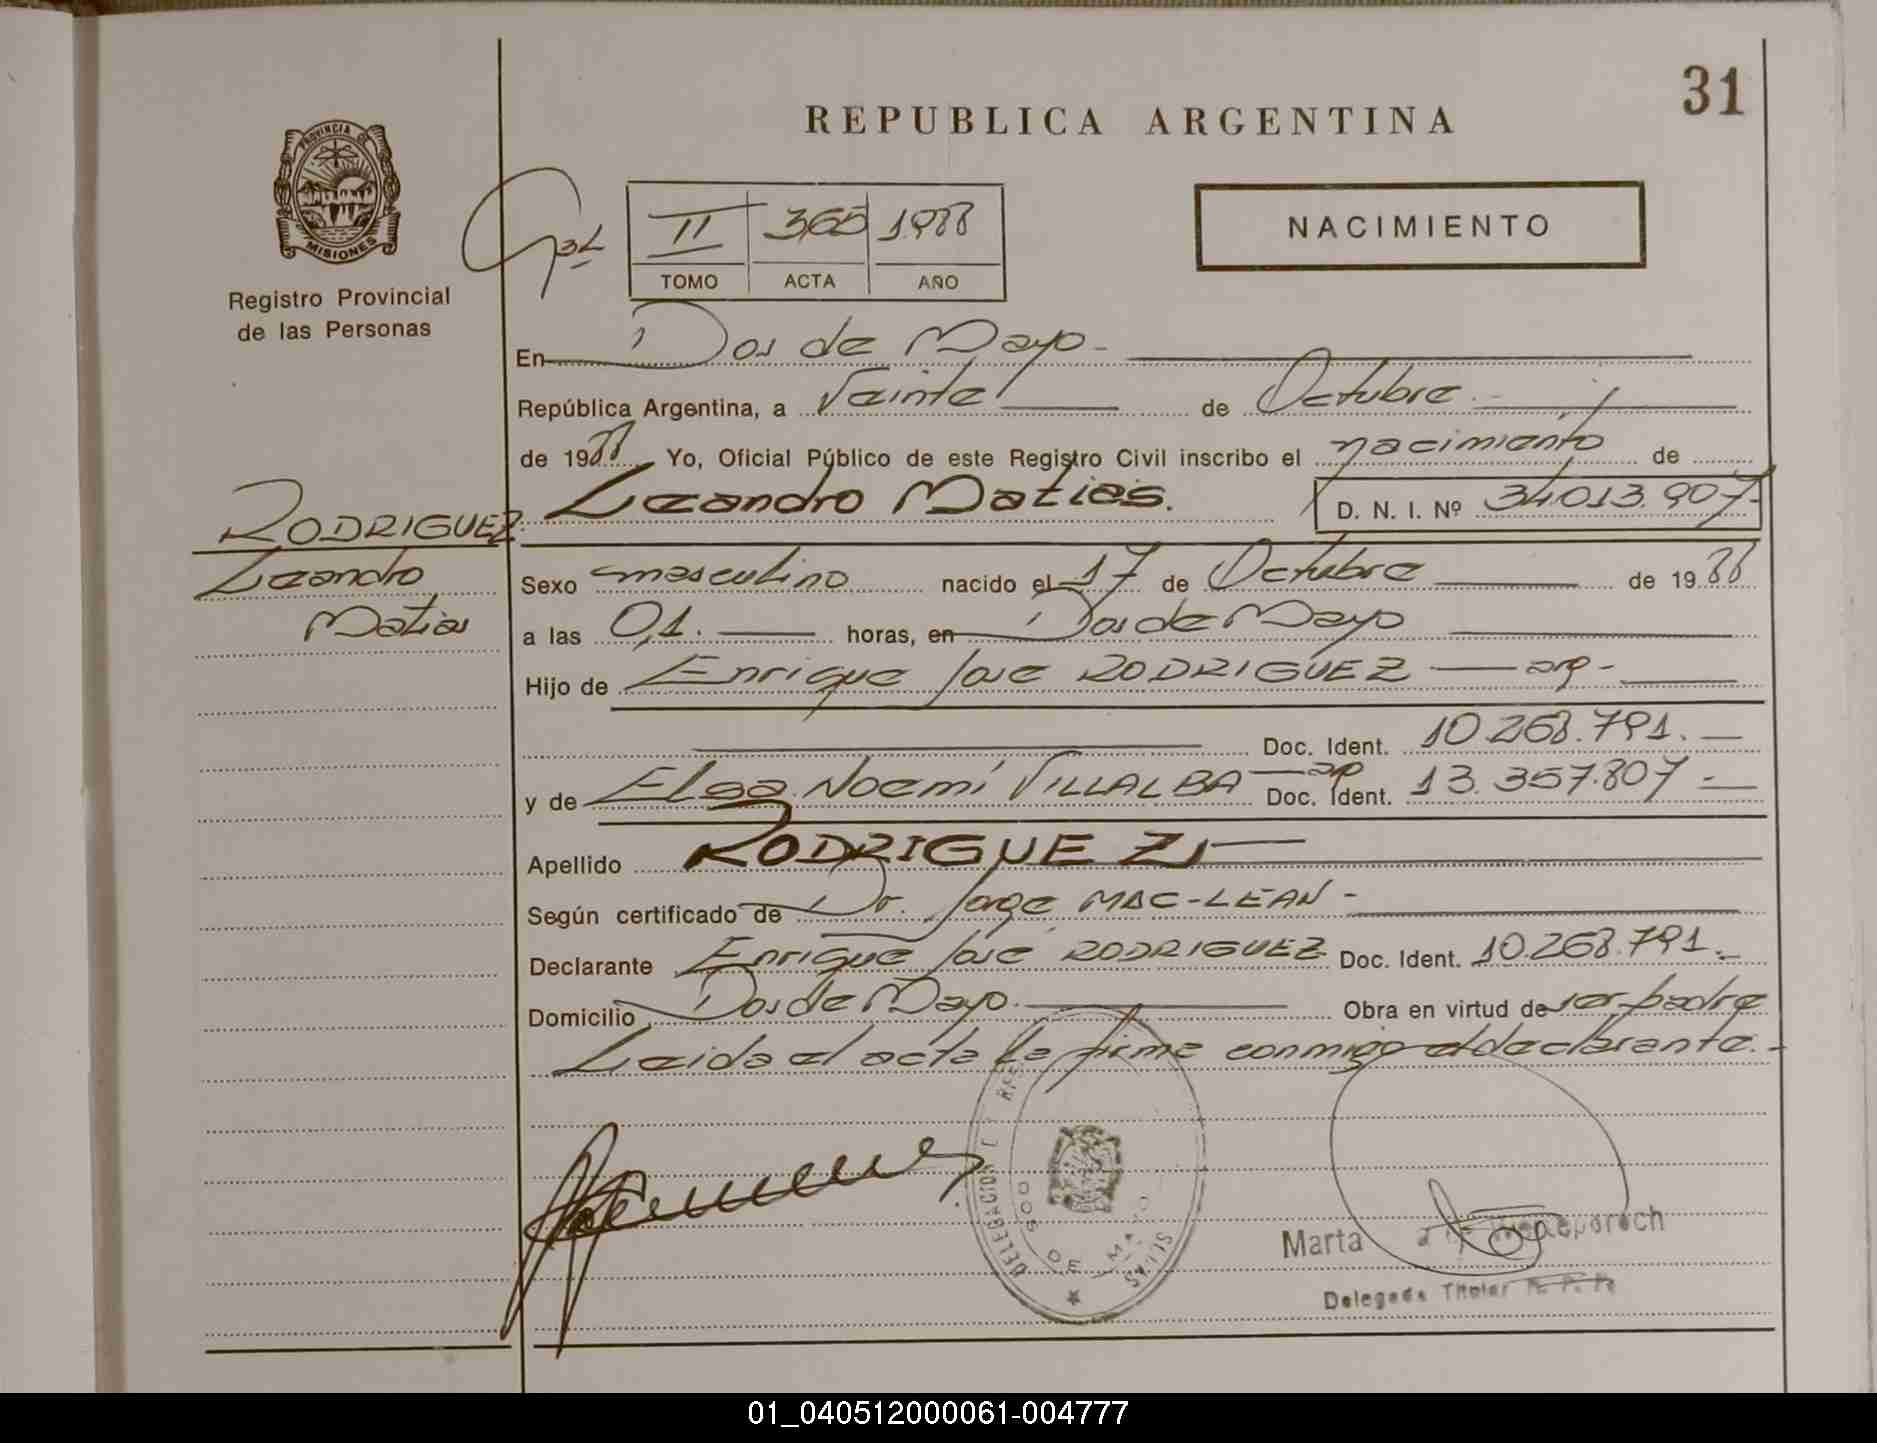 31
REPUBLICA ARGENTINA
PROVINCIA DE
MISIONES
Registro Provincial
de las Personas
II 365 1988
TOMO ACTA AÑO
NACIMIENTO
En Dos de Mayo-
República Argentina, a Veinte de Octubre.-
de 1988 Yo, Oficial Público de este Registro Civil inscribo el nacimiento de
Leandro Matias. D. N. I. Nº 34.013.907-
RODRIGUEZ
Leandro
Matias
Sexo masculino nacido el 17 de Octubre de 1988
a las 0,1. horas, en Dos de Mayo
Hijo de Enrique Jose RODRIGUEZ — arg-
Doc. Ident. 10.268.791.-
y de Elsa Noemí VILLALBA — ap Doc. Ident. 13.357.807-
Apellido RODRIGUEZ
Según certificado de Dr. Jorge MAC-LEAN-
Declarante Enrique Jose RODRIGUEZ Doc. Ident. 10.268.791.-
Domicilio Dos de Mayo. Obra en virtud de ser padre
Leida el acta la firma conmigo el declarante.-
DELEGACION
DOS DE MAYO
Marta
Delegada Titular R. P. P.
01_040512000061-004777